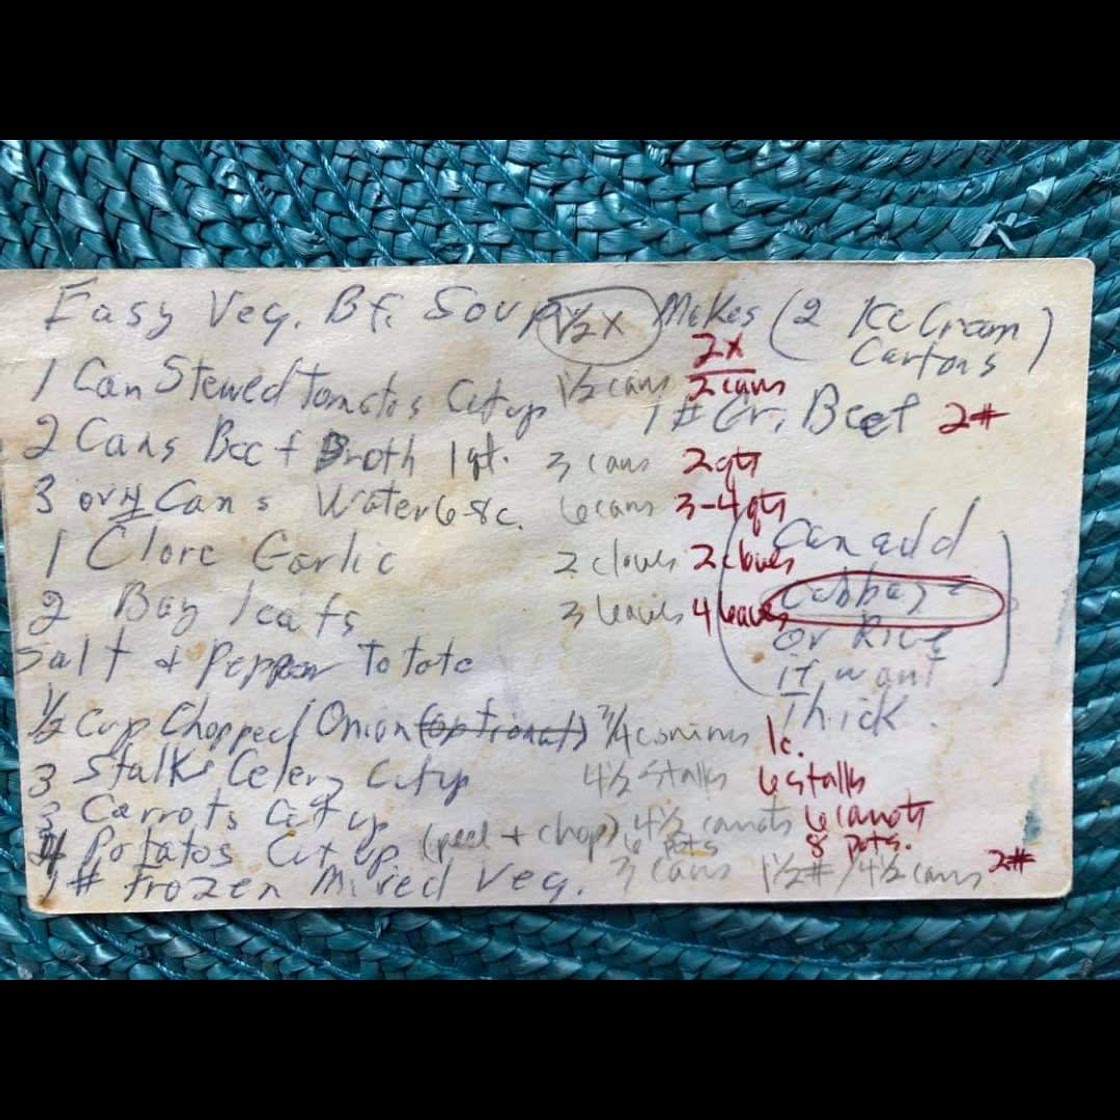 Easy Veg. Bf. Soup 1½ X Makes (2 Ice Cream Cartons)
2X
1 Can Stewed Tomatos Cut up 1½ cans 2 cans
1 # Gr. Beef 2#
2 Cans Beef Broth 1 qt. 3 cans 2 qts
3 or 4 Cans Water 6-8 c. 6 cans 3-4 qts
1 Clove Garlic 2 cloves 2 cloves
2 Bay leafs 3 leaves 4 leaves
(Can add
Cabbage
or Rice
if want
Thick.)
Salt & Pepper To tate
½ Cup Chopped Onion (optional) ¾ c onions 1 c.
3 Stalks Celery Cut up 4½ stalks 6 stalks
3 Carrots Cut up 4½ carrots 6 carrots
4 Potatos Cut Up (peel + chop) 6 pots 8 pots.
1 # Frozen Mixed Veg. 3 cans 1½# / 4½ cans 2#